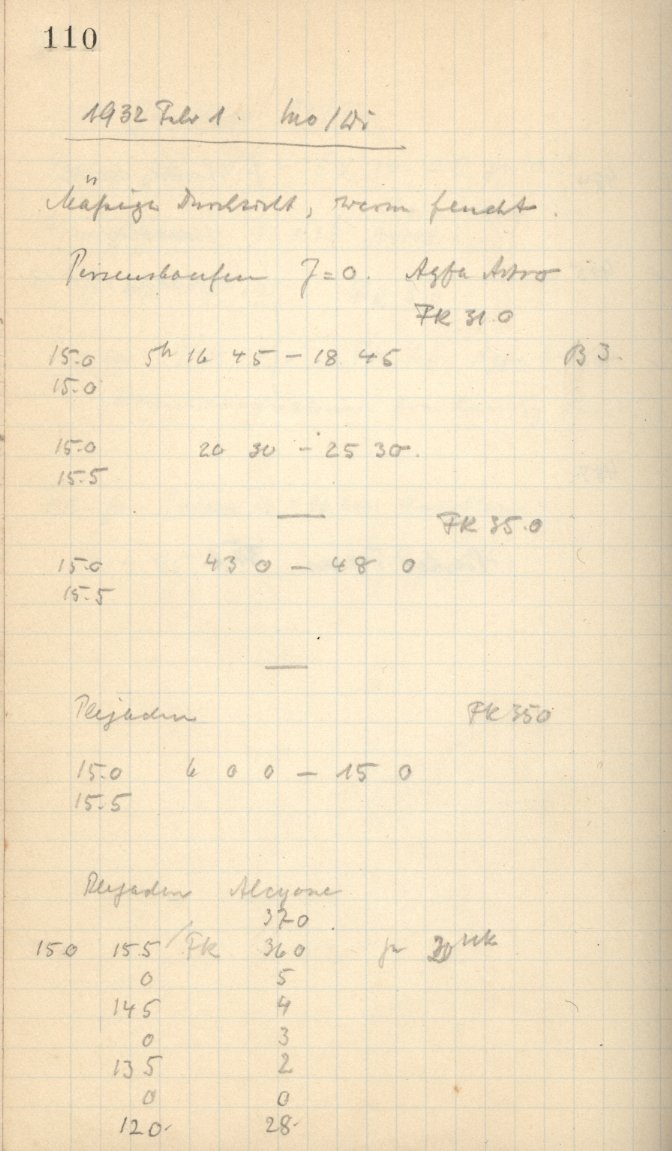 110
1932 Febr 1. Mo/Di
Mäßige Durchsicht, warm feucht.
Perseushaufen J=0. Agfa Astro
FK 31.0
15.0 5h 16 45 – 18 45 B 3.
15.0
15.0 20 30 – 25 30.
15.5
—
FK 35.0
15.0 43 0 – 48 0
15.5
—
Plejaden FK 350
15.0 6 0 0 – 15 0
15.5
Plejaden Alcyone
370
150 155 / FK 360 je 20
0 5
145 4
0 3
135 2
0 0
120. 28.